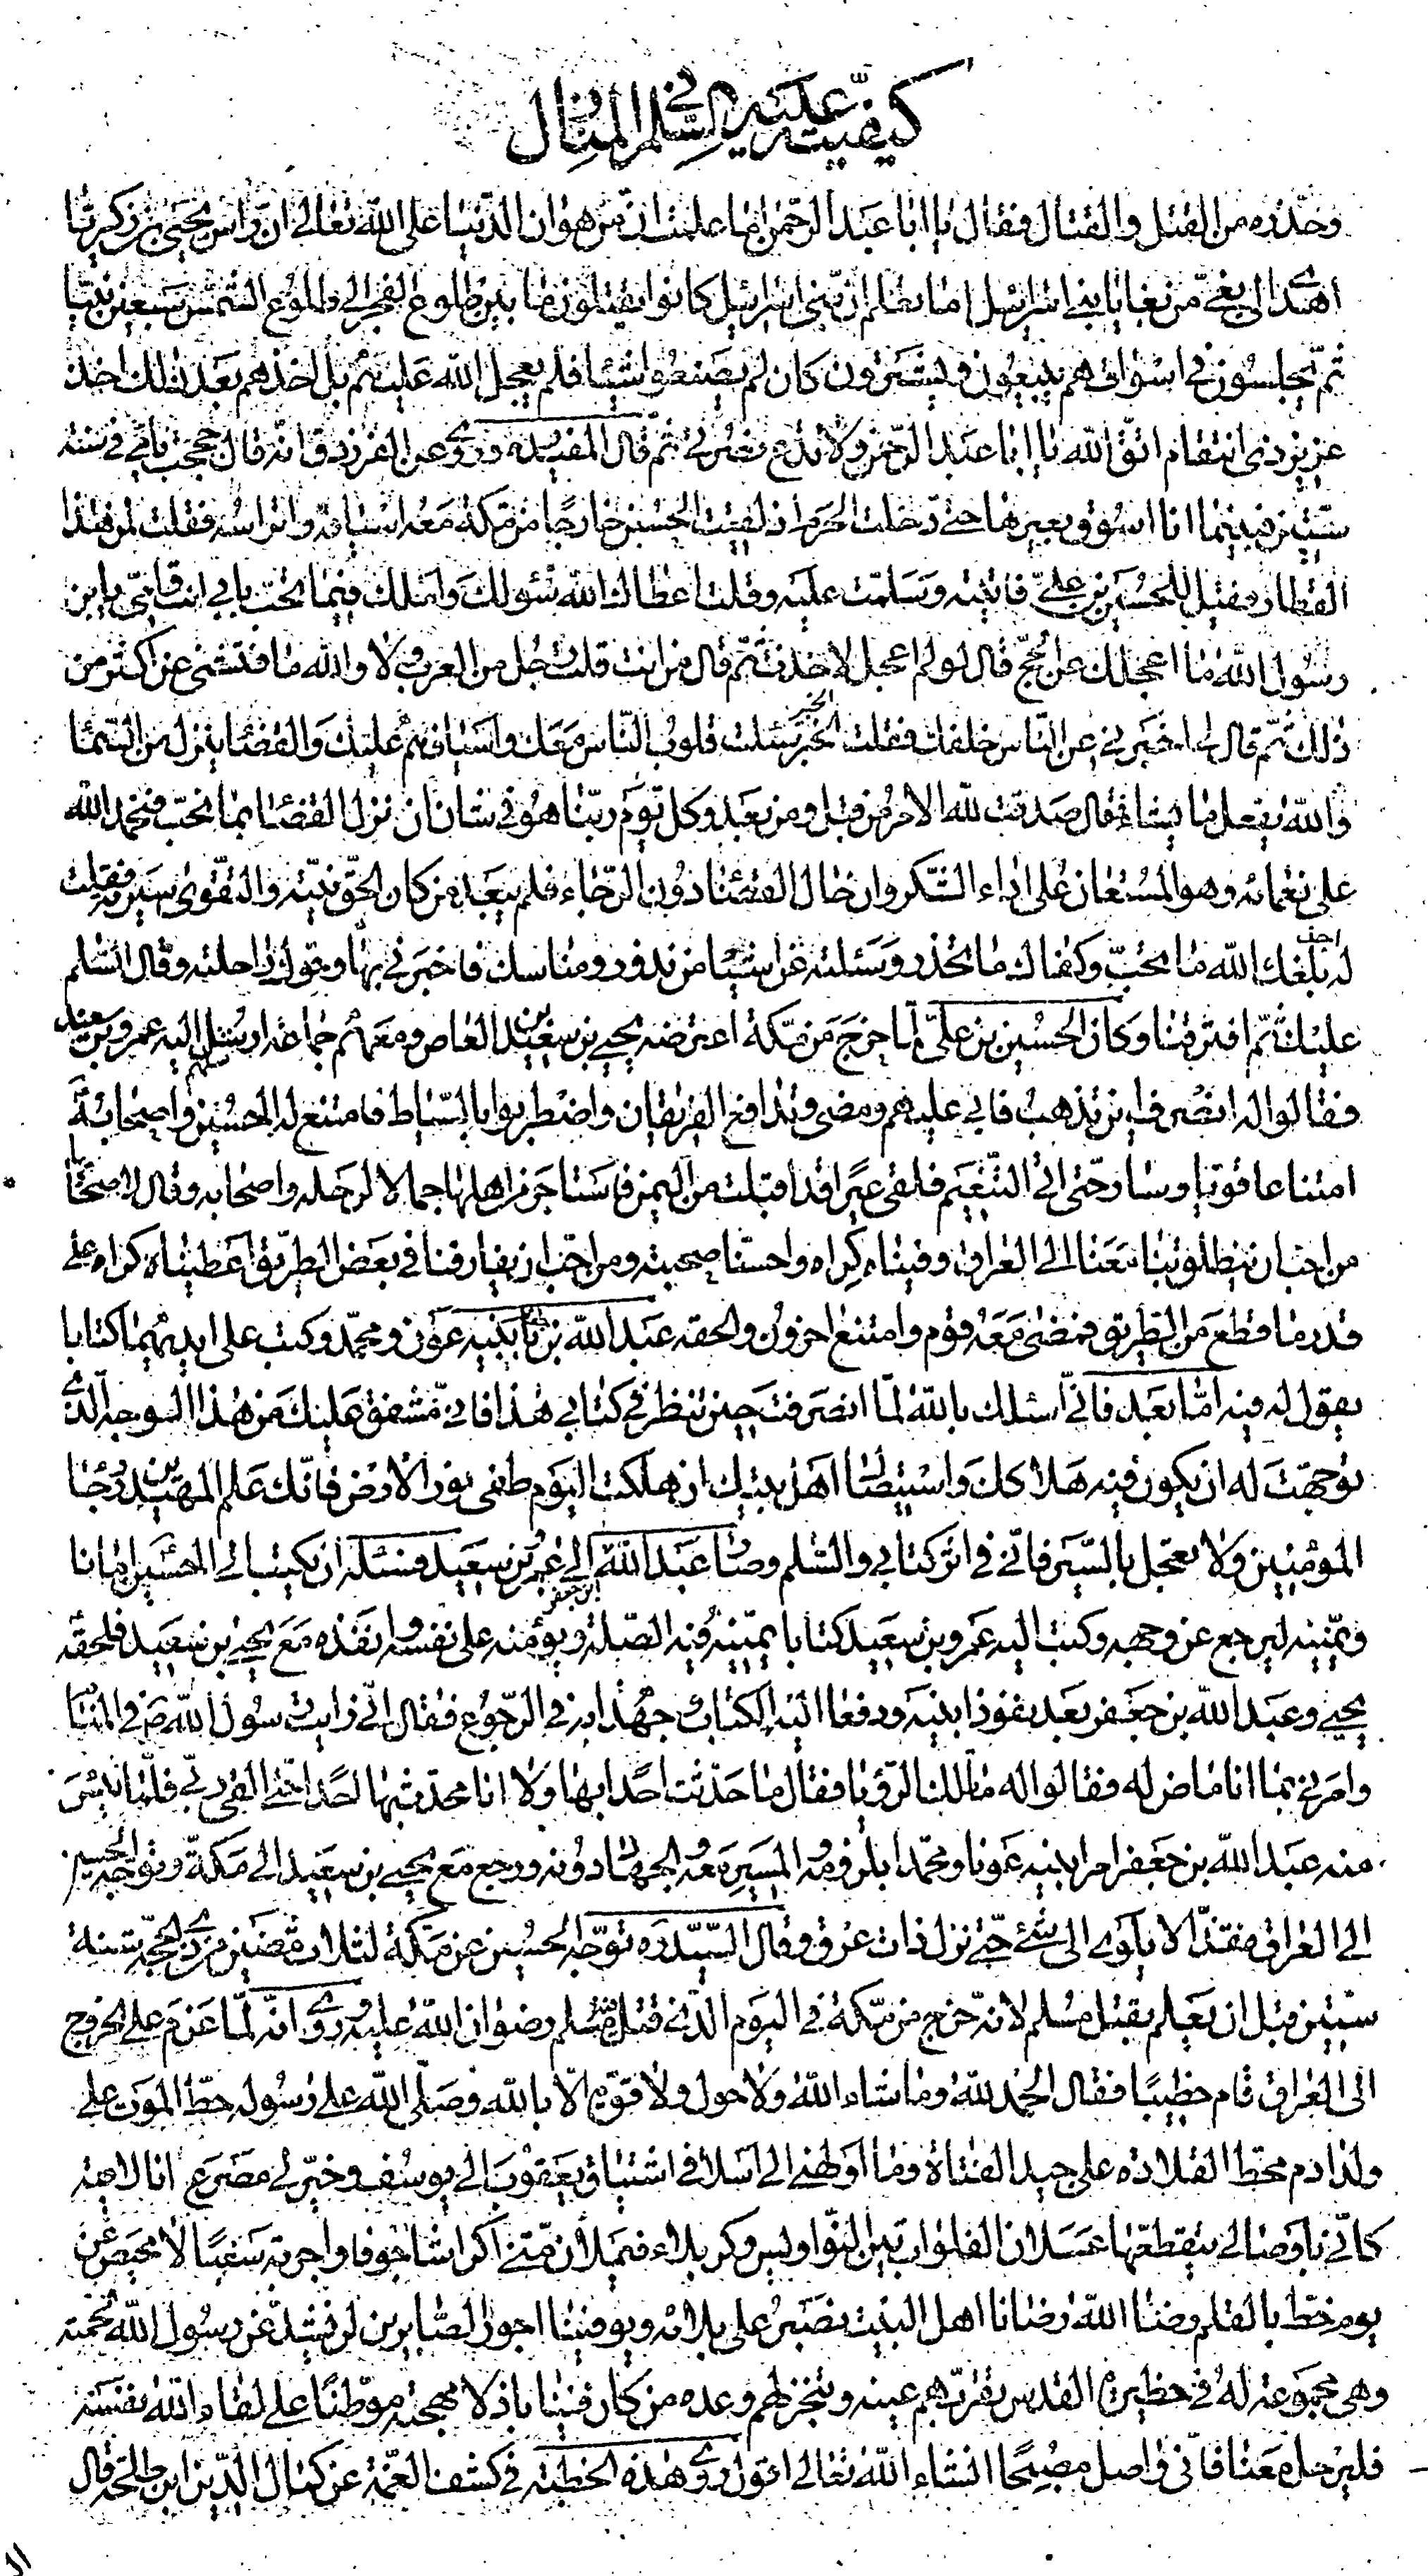 كيفيته عليه السلم في المنازل
وحذّره من القتل والقتال فقال يا ابا عبد الرحمن اما علمت انّ من هوان الدّنيا على الله تعالى انّ راس يحيى بن زكريّا
اهدى الى بغىّ من بغايا بنى اسرائيل اما تعلم انّ بنى اسرائيل كانوا يقتلون ما بين طلوع الفجر الى طلوع الشّمس سبعين نبيّا
ثمّ يجلسون فى اسواقهم يبيعون ويشترون كان لم يصنعوا شيئا فلم يعجل الله عليهم بل اخذهم بعد ذلك اخذ
عزيز ذى انتقام اتّق الله يا ابا عبد الرّحمن ولا تدع نصرتى ثمّ قال المفيد ره وروى عن الفرزدق انّه قال حججت بامّى فى سنة
ستّين فبينما انا اسوق بعيرها حتى دخلت الحرم اذ لقيت الحسين خارجا من مكّة معه اسيافه واتراسه فقلت لمن هذا
القطار فقيل للحسين بن علىّ فاتيته وسلّمت عليه وقلت اعطاك الله سؤلك واملك فيما تحبّ بابى انت وامّى يا بن
رسول الله ما اعجلك عن الحجّ قال لو لم اعجل لاخذت ثمّ قال من انت قلت رجل من العرب ولا والله ما فتشنى عن اكثر من
ذلك ثمّ قال لى اخبرنى عن النّاس خلفك فقلت الخبير سئلت قلوب النّاس معك واسيافهم عليك والقضاء ينزل من السّماء
والله يفعل ما يشاء فقال صدقت لله الامر من قبل ومن بعد وكل يوم ربّنا هو فى شان ان نزل القضاء بما نحبّ فنحمد الله
على نعمائه وهو المستعان على اداء الشّكر وان حال القضاء دون الرّجاء فلم يبعد من كان الحقّ نيّته والتّقوى سيرته فقلت
له اجل بلغك الله ما تحبّ وكفاك ما تحذر وسئلته عن اشياء من نذور ومناسك فاخبرنى بها وحرّك راحلته وقال السّلم
عليك ثمّ افترقنا وكان الحسين بن علىّ لما خرج من مكّة اعترضه يحيى بن سعيد بن العاص ومعهم جماعة ارسلهم اليه عمرو بن سعيد
فقالوا له انصرف اين تذهب فابى عليهم ومضى وتدافع الفريقان واضطربوا بالسّياط فامتنع له الحسين واصحابه
امتناعا قويّا وسار حتّى اتى التّنعيم فلقى عيرا قد اقبلت من اليمن فاستاجر من اهلها جمالا لرحله واصحابه وقال لاصحابها
من احبّ ان ينطلق معنا الى العراق وفيناه كراه واحسنّا صحبته ومن احبّ ان يفارقنا فى بعض الطّريق اعطيناه كراه على
قدر ما قطع من الطّريق فمضى معه قوم وامتنع اخرون والحقه عبد الله بن جعفر بابنيه عون ومحمّد وكتب على ايديهما كتابا
يقول له فيه امّا بعد فانّى اسئلك بالله لمّا انصرفت حين تنظر فى كتابى هذا فانّى مشفق عليك من هذا التّوجه الّذى
توجهت له ان يكون فيه هلاكك واستيصال اهل بيتك ان هلكت اليوم طفى نور الارض فانّك علم المهتدين ورجاء
المؤمنين ولا تعجل بالسّير فانّى فى اثر كتابى والسّلم وصار عبد الله بن جعفر الى عمرو بن سعيد فسئله ان يكتب الى الحسين امانا
ويمنّيه ليرجع عن وجهه وكتب اليه عمرو بن سعيد كتابا يمنّيه فيه الصّلة ويؤمنه على نفسه وانفذه مع يحيى بن سعيد فلحقه
يحيى وعبد الله بن جعفر بعد نفوذ ابنيه ودفعا اليه الكتاب وجهدا به فى الرّجوع فقال انّى رايت رسول الله ص فى المنام
وامرنى بما انا ماض له فقالوا له ما تلك الرّؤيا فقال ما حدّثت احدا بها ولا انا محدّث بها احدا حتّى القى ربّى فلمّا ايس
منه عبد الله بن جعفر امر ابنيه عونا ومحمّدا بلزومه والمسير معه والجهاد دونه ورجع مع يحيى بن سعيد الى مكّة وتوجّه الحسين
الى العراق مغذّا لا يلوى الى شئ حتّى نزل ذات عرق وقال السّيّد ره توجّه الحسين عن مكّة لثلاث مضين من ذى الحجّة سنة
ستّين قبل ان يعلم بقتل مسلم لانّه خرج من مكّة فى اليوم الّذى قتل فيه مسلم رضوان الله عليه وروى انّه لمّا عزم على الخروج
الى العراق قام خطيبا فقال الحمد لله وما شاء الله ولا حول ولا قوّة الّا بالله وصلّى الله على رسوله خطّ الموت على
ولد ادم مخط القلادة على جيد الفتاة وما اولهنى الى اسلافى اشتياق يعقوب الى يوسف وخيّر لى مصرع انا لاقيه
كانّى باوصالى يتقطّعها عسلان الفلوات بين النّواويس وكربلاء فيملان منّى اكراشا جوفا واجربة سغبا لا محيص عن
يوم خطّ بالقلم رضا الله رضانا اهل البيت نصبر على بلائه ويوفينا اجور الصّابرين لن تشذّ عن رسول الله لحمته
وهى مجموعة له فى حظيرة القدس تقرّ بهم عينه وينجز لهم وعده من كان فينا باذلا مهجته موطّنا على لقاء الله نفسه
فليرحل معنا فانّى راحل مصبحا انشاء الله تعالى اقول روى هذه الخطبة فى كشف الغمّة عن كمال الدّين ابن طلحة قال